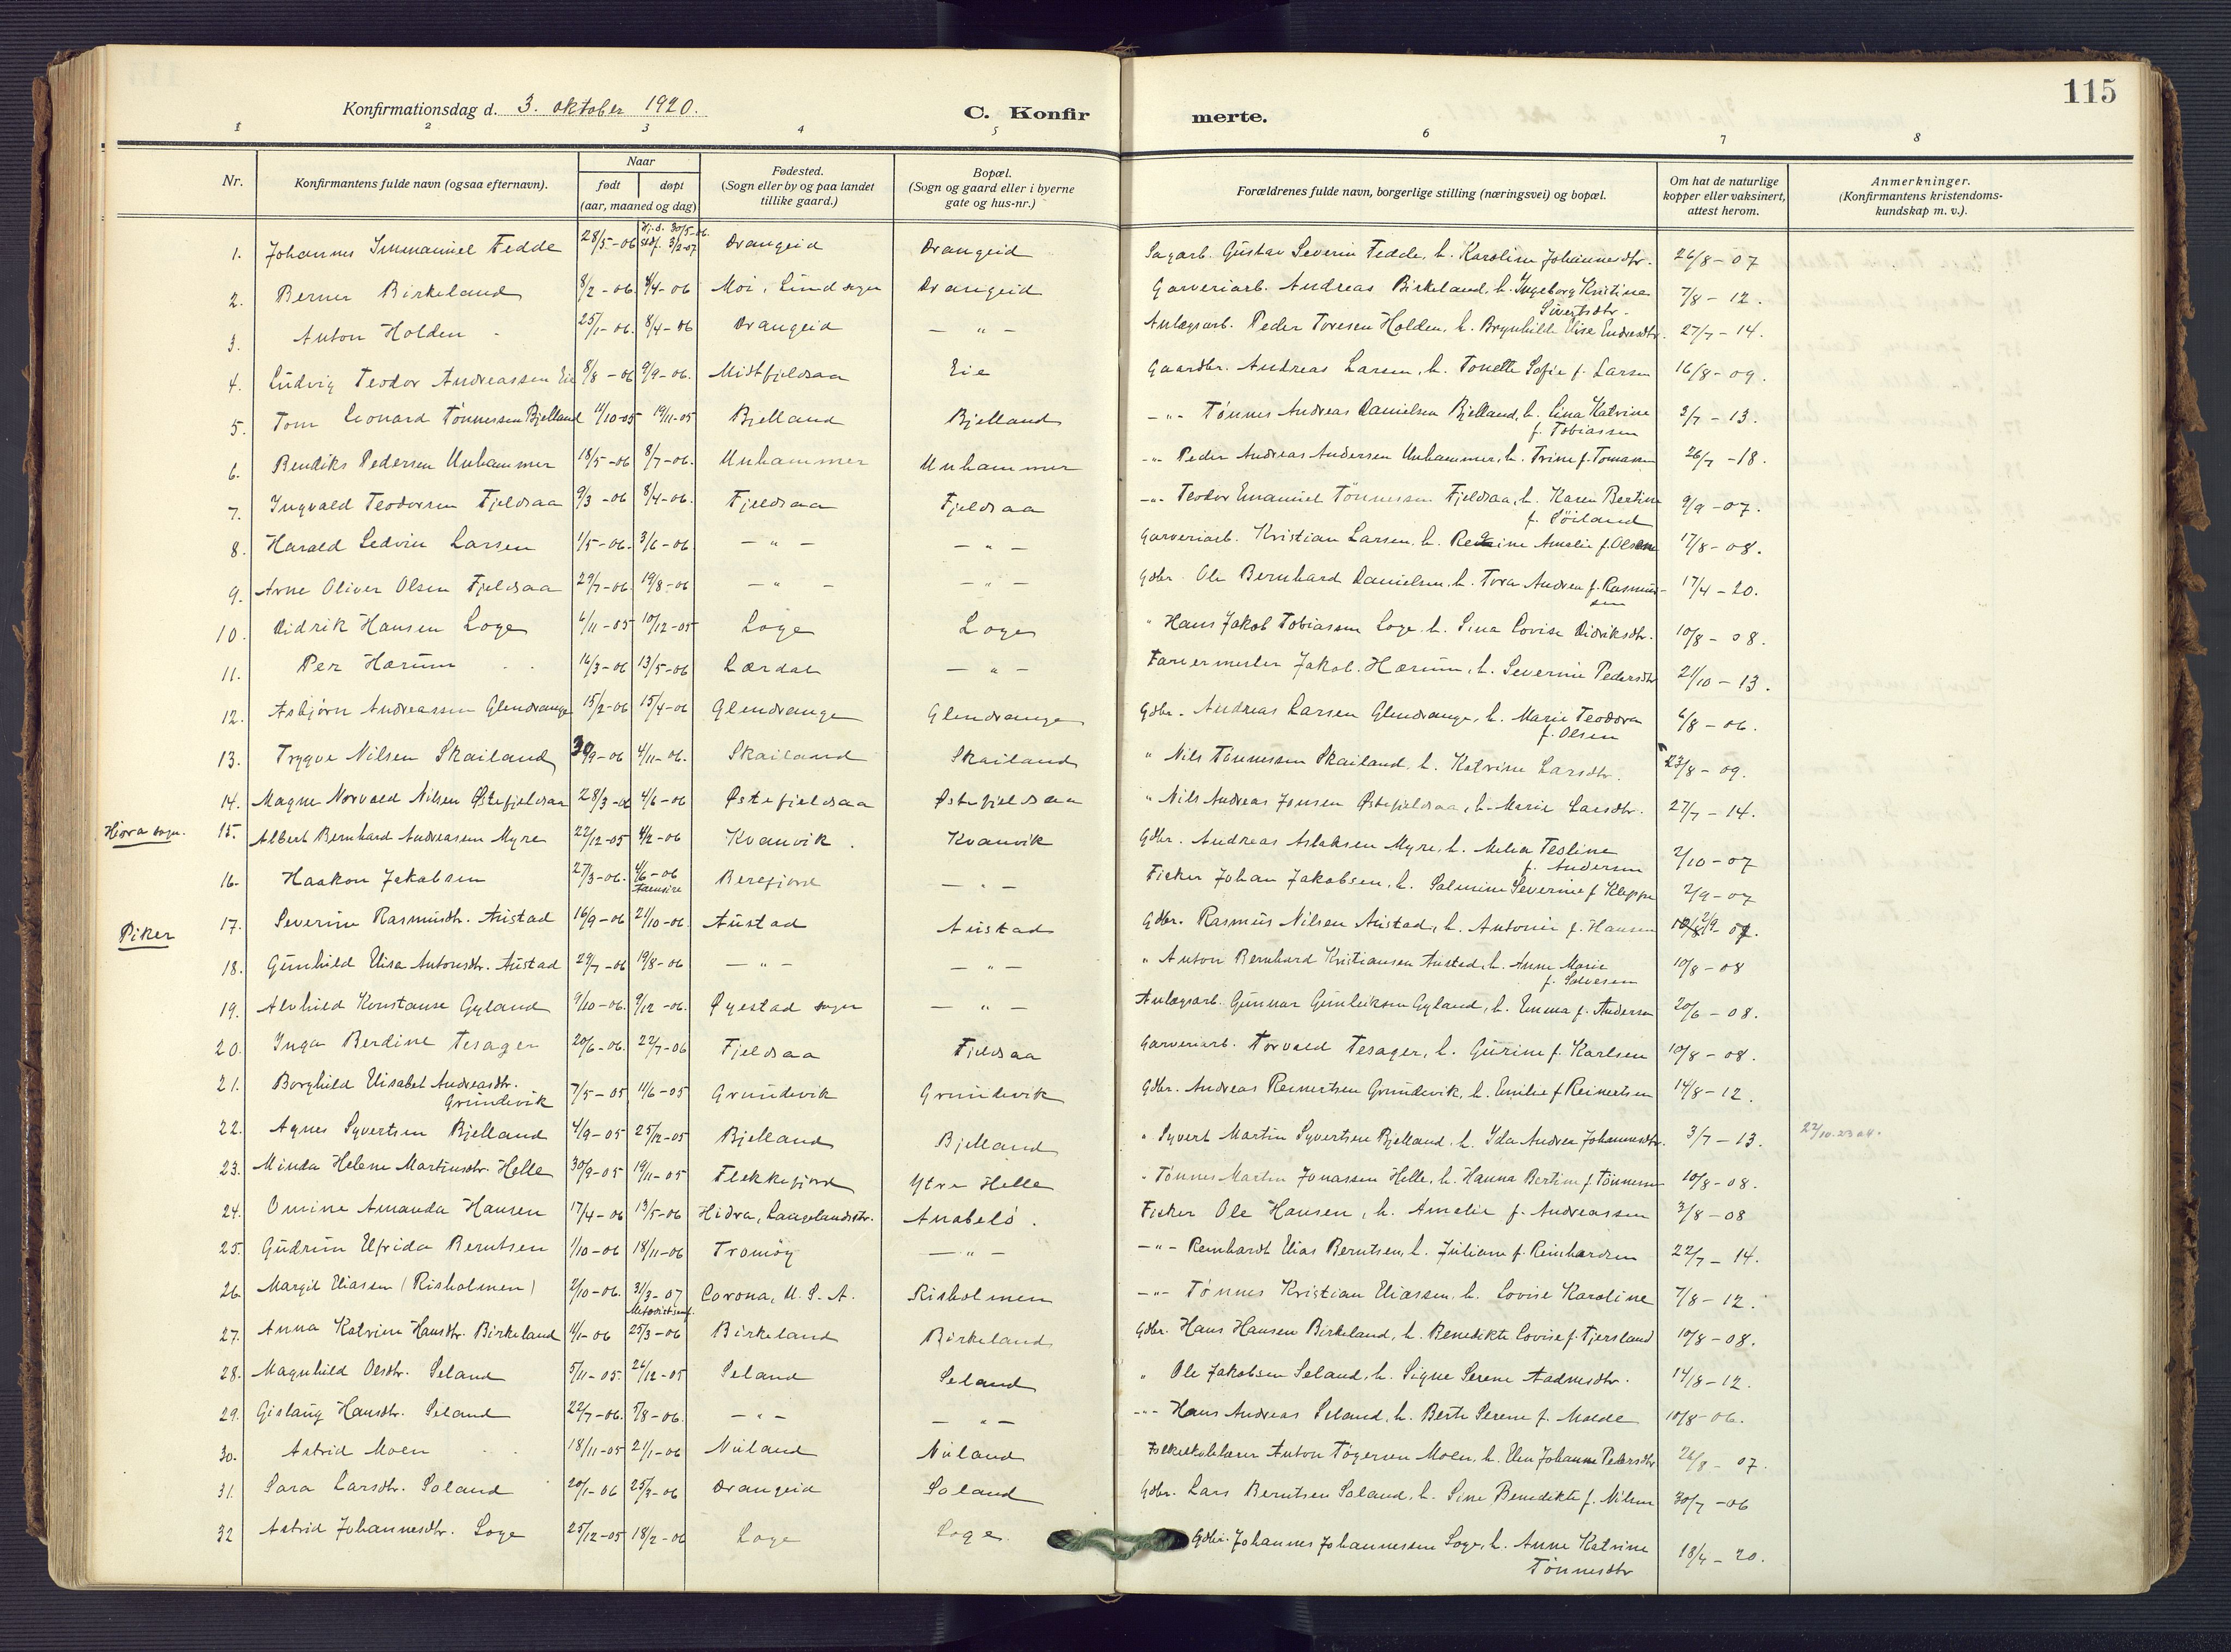 115
Konfirmationsdag d. 3. oktober 1920.
C. Konfirmerte.
1 2 3 4 5 6 7 8
Nr.
Konfirmantens fulde navn (ogsaa efternavn).
Naar
født døpt
(aar, maaned og dag)
Fødested.
(Sogn eller by og paa landet
tillike gaard.)
Bopæl.
(Sogn og gaard eller i byerne
gate og hus-nr.)
Forældrenes fulde navn, borgerlige stilling (næringsvei) og bopæl.
Om hat de naturlige
kopper eller vaksinert,
attest herom.
Anmerkninger.
(Konfirmantens kristendoms-
kundskap m. v.).
1. Johannes Immanuel Fedde 28/5-06 Hj.d. 30/5-06. Stdf. 3/2-07 Drangeid Drangeid Sagarb. Gustav Severin Fedde, h. Karoline Johannesdtr. 26/8-07
2. Berner Birkeland 8/2-06 4/4-06 Moi, Lund sogn Drangeid Garveriarb. Andreas Birkeland, h. Ingeborg Kristine Sivertsdtr. 7/8-12.
3. Anton Holden 25/1-06. 8/4-06 Drangeid — " — Anlægsarb. Peder Toresen Holden, h. Brynhild Elise Endresdtr. 27/7-14.
4. Ludvig Teodor Andreassen Eie 8/8-06 9/9-06. Midtfjeldsaa Eie Gaardbr. Andreas Larsen, h. Tonette Sofie f. Larsen 16/8-09.
5. Tom Leonard Tønnessen Bjelland 11/10-05 19/11-05 Bjelland Bjelland —"— Tønnes Andreas Danielsen Bjelland, h. Lina Katrine f. Tobiassen 3/7-13.
6. Bendiks Pedersen Unhammer 18/5-06 8/7-06. Unhammer Unhammer —"— Peder Andreas Andersen Unhammer, h. Trine f. Tomassen 26/7-18.
7. Ingvald Teodorsen Fjeldsaa 9/3-06 8/4-06. Fjeldsaa Fjeldsaa —"— Teodor Emanuel Tønnessen Fjeldsaa, h. Karen Bertine f. Søiland 9/9-07.
8. Harald Ledvin Larsen 1/5-06. 3/6-06 — " — — " — Garveriarb. Kristian Larsen, h. Amalie f. Olsen 17/8-08.
9. Arne Oliver Olsen Fjeldsaa 29/7-06. 19/8-06 — " — — " — Gdbr. Ole Bernhard Danielsen, h. Tora Andrea f. Rasmussen 17/4-20.
10. Didrik Hansen Loge 6/11-05 10/12-05 Loge Loge " Hans Jakob Tobiassen Loge, h. Sina Lovise Didriksdtr. 10/8-08.
11. Per Hærum 16/3-06 13/5-06 Lærdal — " — Farvermester Jakob Hærum, h. Severine Pedersdtr 21/10-13.
12. Asbjørn Andreassen Glendrange 15/2-06 15/4-06 Glendrange Glendrange Gdbr. Andreas Larsen Glendrange, h. Marie Teodora f. Olsen 6/8-06.
13. Trygve Nilsen Skailand 30/9-06 4/11-06. Skailand Skailand " Nils Tønnessen Skailand, h. Katrine Larsdtr. 23/8-09.
14. Magne Norvald Nilsen Østefjeldsaa 28/3-06 4/6-06 Østefjeldsaa Østefjeldsaa " Nils Andreas Jonsen Østefjeldsaa, h. Marie Larsdtr. 27/7-14.
Hidra sogn. 15. Albert Bernhard Andreasen Myre 22/12-05 4/2-06 Kvanvik. Kvanvik Gdbr. Andreas Aslaksen Myre, h. Melia Teoline f. Andersen 2/10-07
16. Haakon Jakobsen 27/3-06. 4/6-06 Berefjord — " — Fisker Johan Jakobsen, h. Salmine Severine f. Kleppe 2/9-07
Piker 17. Severine Rasmusdtr. Austad 16/9-06 21/10-06. Austad Austad Gdbr. Rasmus Nilsen Austad, h. Antonie f. Hansen 2/9-07.
18. Gunhild Elisa Antonsdtr. Austad 29/7-06 19/8-06 — " — — " — " Anton Bernhard Kristiansen Austad, h. Anne Marie f. Salvesen 10/8-08
19. Alvhild Konstanse Gyland 9/10-06. 9/12-06. Øyestad sogn — " — Anlægsarb. Gunnar Gunleiksen Gyland, h. Emma f. Andersen 20/6-08.
20. Inga Berdine Tesager 20/6-06. 22/7-06 Fjeldsaa Fjeldsaa Garveriarb. Torvald Tesager, h. Gurine f. Karlsen 10/8-08.
21. Borghild Elisabet Andreasdtr. Grundevik 7/5-05 11/6-05 Grundevik Grundevik Gdbr. Andreas Reinertsen Grundevik, h. Emilie f Reinertsen 14/8-12.
22. Agnes Syvertsen Bjelland 4/9-05 25/12-05 Bjelland Bjelland " Syvert Martin Syvertsen Bjelland, h. Ida Andrea Johannesdtr. 3/7-13.
23. Minda Helene Martinsdtr. Helle 30/9-05 19/11-05 Flekkefjord Ytre Helle " Tønnes Martin Jonassen Helle, h. Hanna Bertine f. Tønnessen 10/8-08.
24. Omine Amanda Hansen 17/4-06 13/5-06 Hidra, Laagelandsstr. Anabelø. Fisker Ole Hansen, h. Amalie f. Andreassen 3/8-08
25. Gudrun Elfrida Berntsen 1/10-06 18/11-06 Tromøy — " — —"— Reinhardt Elias Berntsen, h. Juliane f. Reinhardsen 22/7-14.
26. Margit Eliasen (Risholmen) 2/10-06. 31/3-07 Metodistsamf. Corona, U. S. A. Risholmen —"— Tønnes Kristian Eliassen, h. Lovise Karoline 7/8-12.
27. Anna Katrine Hansdtr. Birkeland 4/1-06 25/3-06 Birkeland Birkeland Gdbr. Hans Hansen Birkeland, h. Benedikte Lovise f. Fjersland 10/8-08.
28. Magnhild Olsdtr. Seland 5/11-05. 26/12-05 Seland Seland " Ole Jakobsen Seland, h. Signe Serene Aadnesdtr. 14/8-12.
29. Gislaug Hansdtr. Seland 22/7-06. 5/8-06. — " — — " — —"— Hans Andreas Seland, h. Berte Serene f. Molde 10/8-06.
30. Astrid Moen 18/11-05 21/1-06 Nuland Nuland Folkeskolelærer Anton Tøgersen Moen, h. Elen Johanne Pedersdtr 26/8-07.
31. Sara Larsdtr. Søland 20/1-06 25/3-06 Drangeid Søland Gdbr. Lars Berntsen Søland, h. Sine Benedikte f. Nilsen 30/7-06
32 Astrid Johannesdtr. Loge 25/12-05 18/2-06 Loge Loge. Gdbr. Johannes Johannessen Loge, h. Anne Katrine Tønnesdtr 18/4-20.